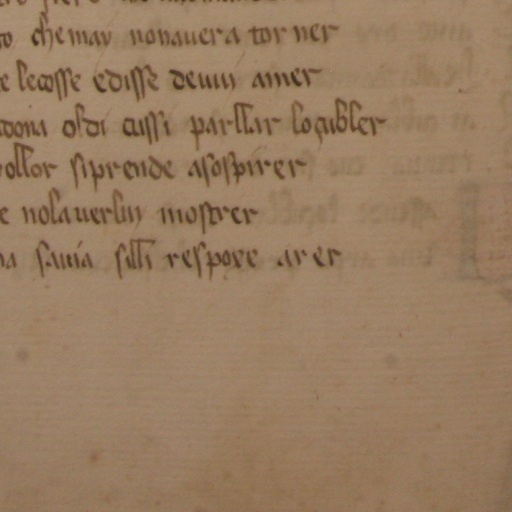 chemav nonavera torner
e lecosse edisse devin amer
dona oldi cussi parllar loçubler
ollor siprende asospirer
e nolaverlin mostrer
na savia silli respoxe arer